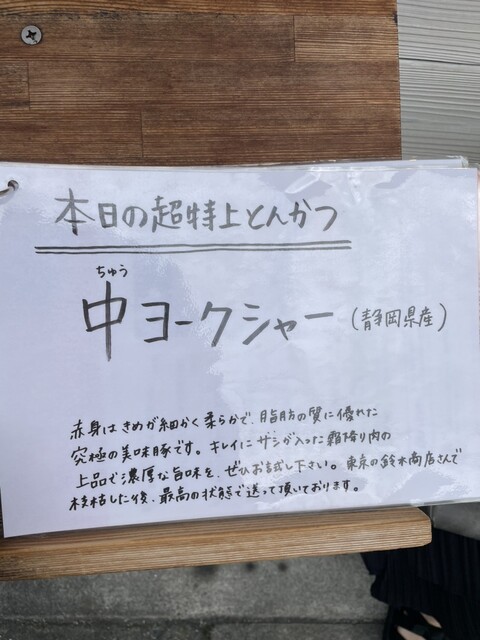 本日の超特上とんかつ
ちゅう
中ヨークシャー(静岡県産)
赤身はきめが細かく柔らかで、脂肪の質に優れた
究極の美味豚です。キレイにサシが入った霜降り肉の
上品で濃厚な旨味を、ぜひお試し下さい。東京の鈴木商店さんで
枝枯した後、最高の状態で送って頂いております。